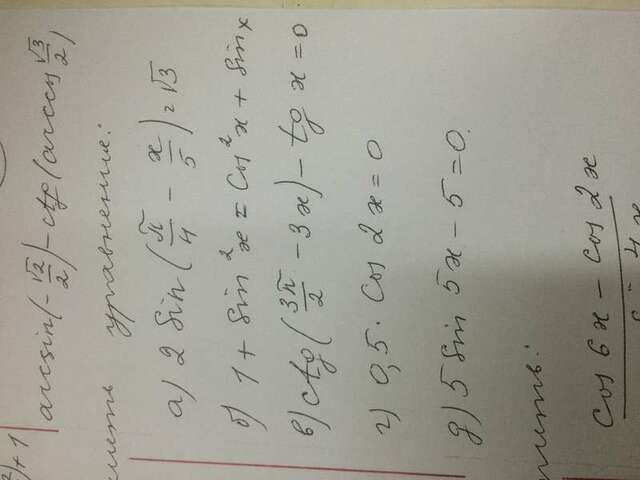 ²)+1
arcsin(-√2/2)-ctg(arccos √3/2)
уравнения:
а) 2 Sin(π/4 - x/5)=√3
б) 1+Sin²x=Cos²x+Sinx
в) ctg(3π/2-3x)-tg x=0
г) 0,5·Cos 2x=0
д) 5 Sin 5x-5=0.
cos 6x-cos 2x
4x